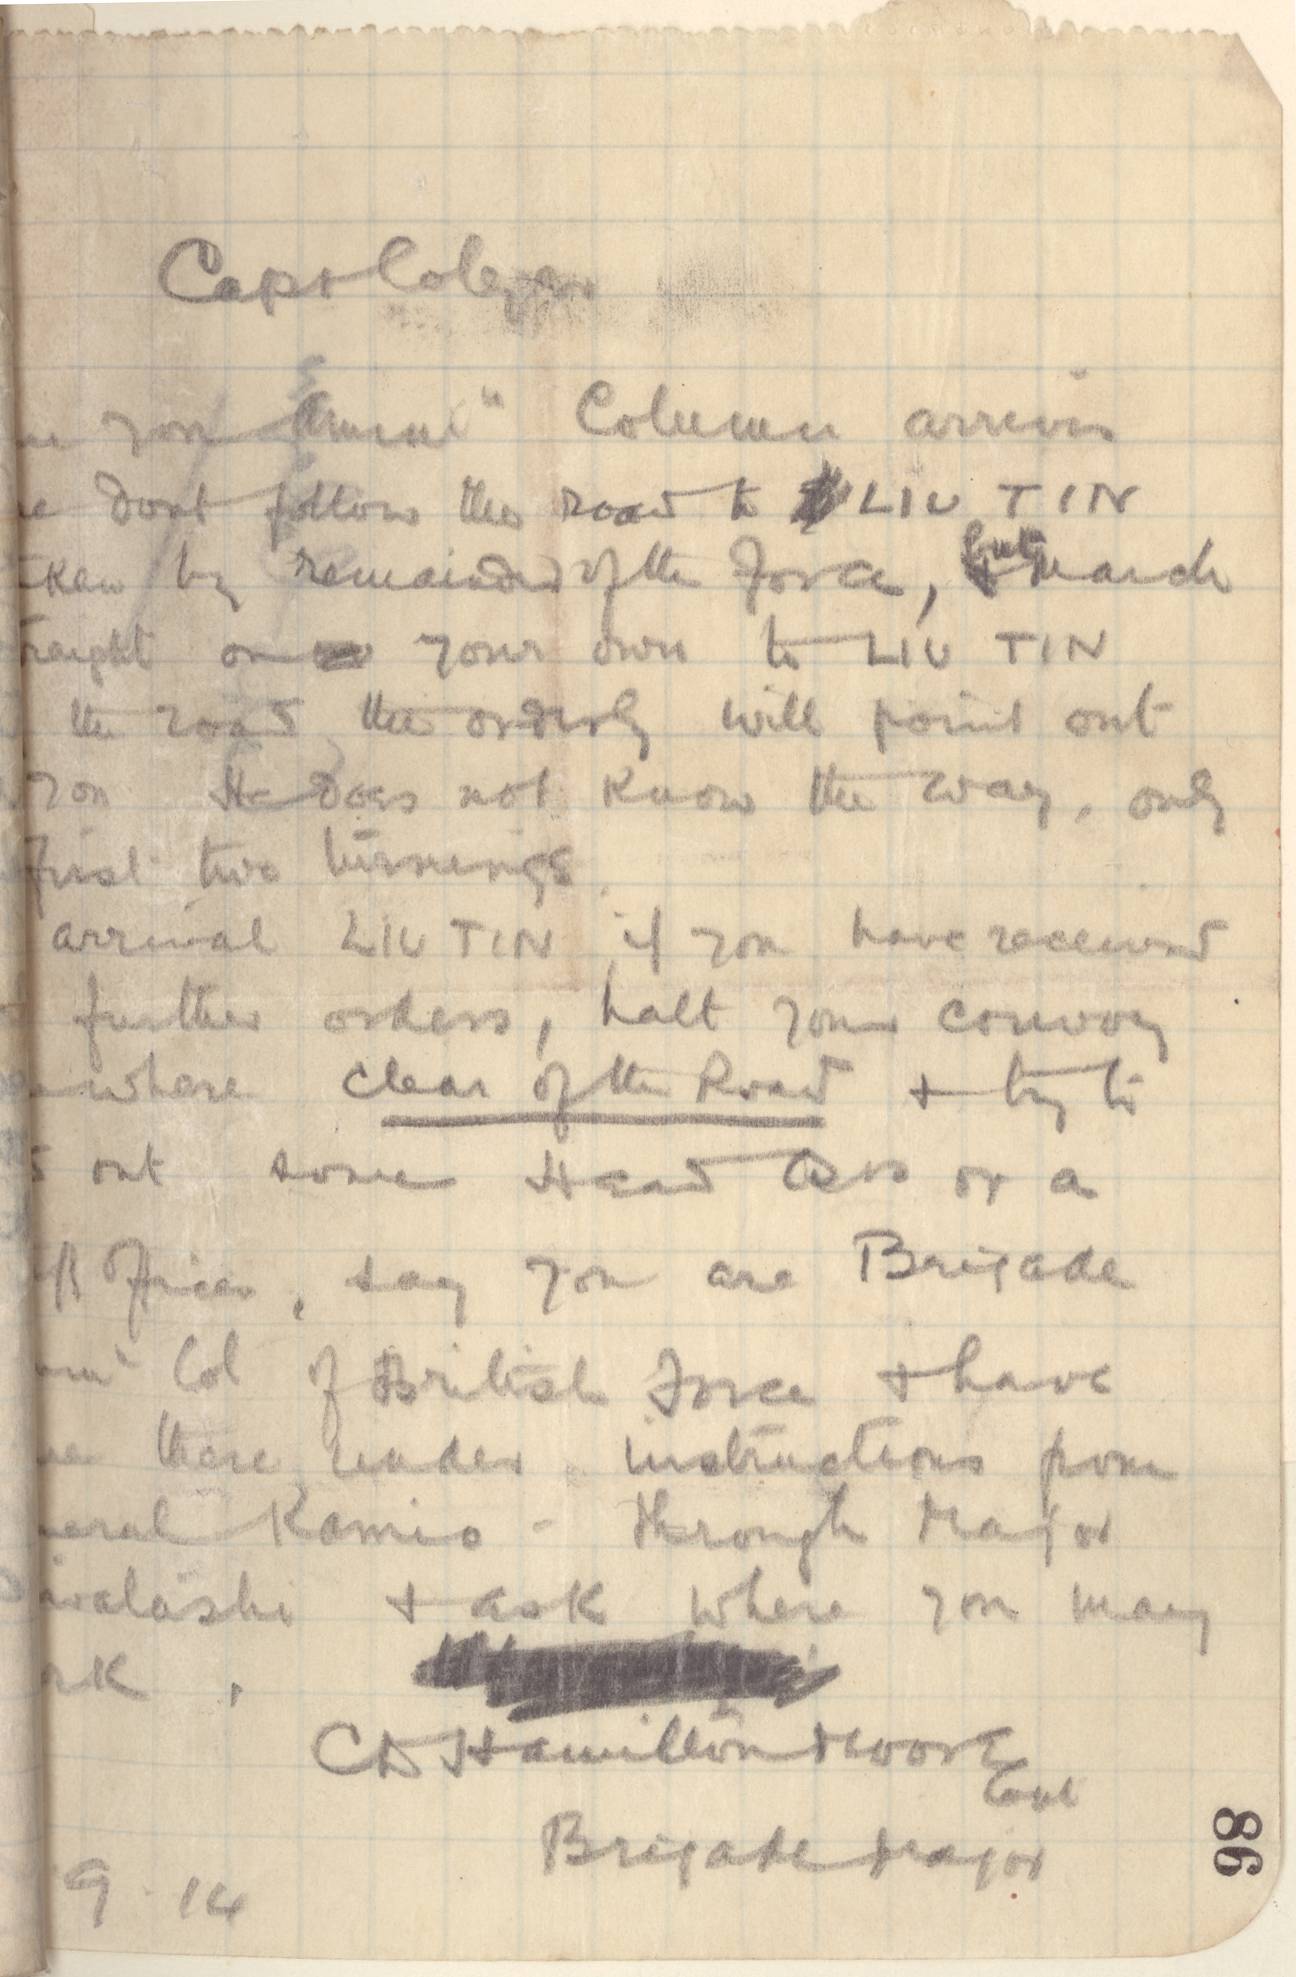 Capt
you Ammn" Column arrives
dont follow the road to LIU TIN
ken by remainder of the Force, but march
raight on your own to LIU TIN
the road the orderly will point out
you He does not know the way, only
first two turnings.
arrival LIU TIN if you have received
further orders, halt your convoy
where clear of the Road & try to
out some Head Qrs or a
ff Officer, say you are Brigade
Col of British Force & have
there under instructions from
neral Kamio - through Major
& ask where you may
rk.
CD Hamilton Moore
Capt
Brigade Major
9 14
98